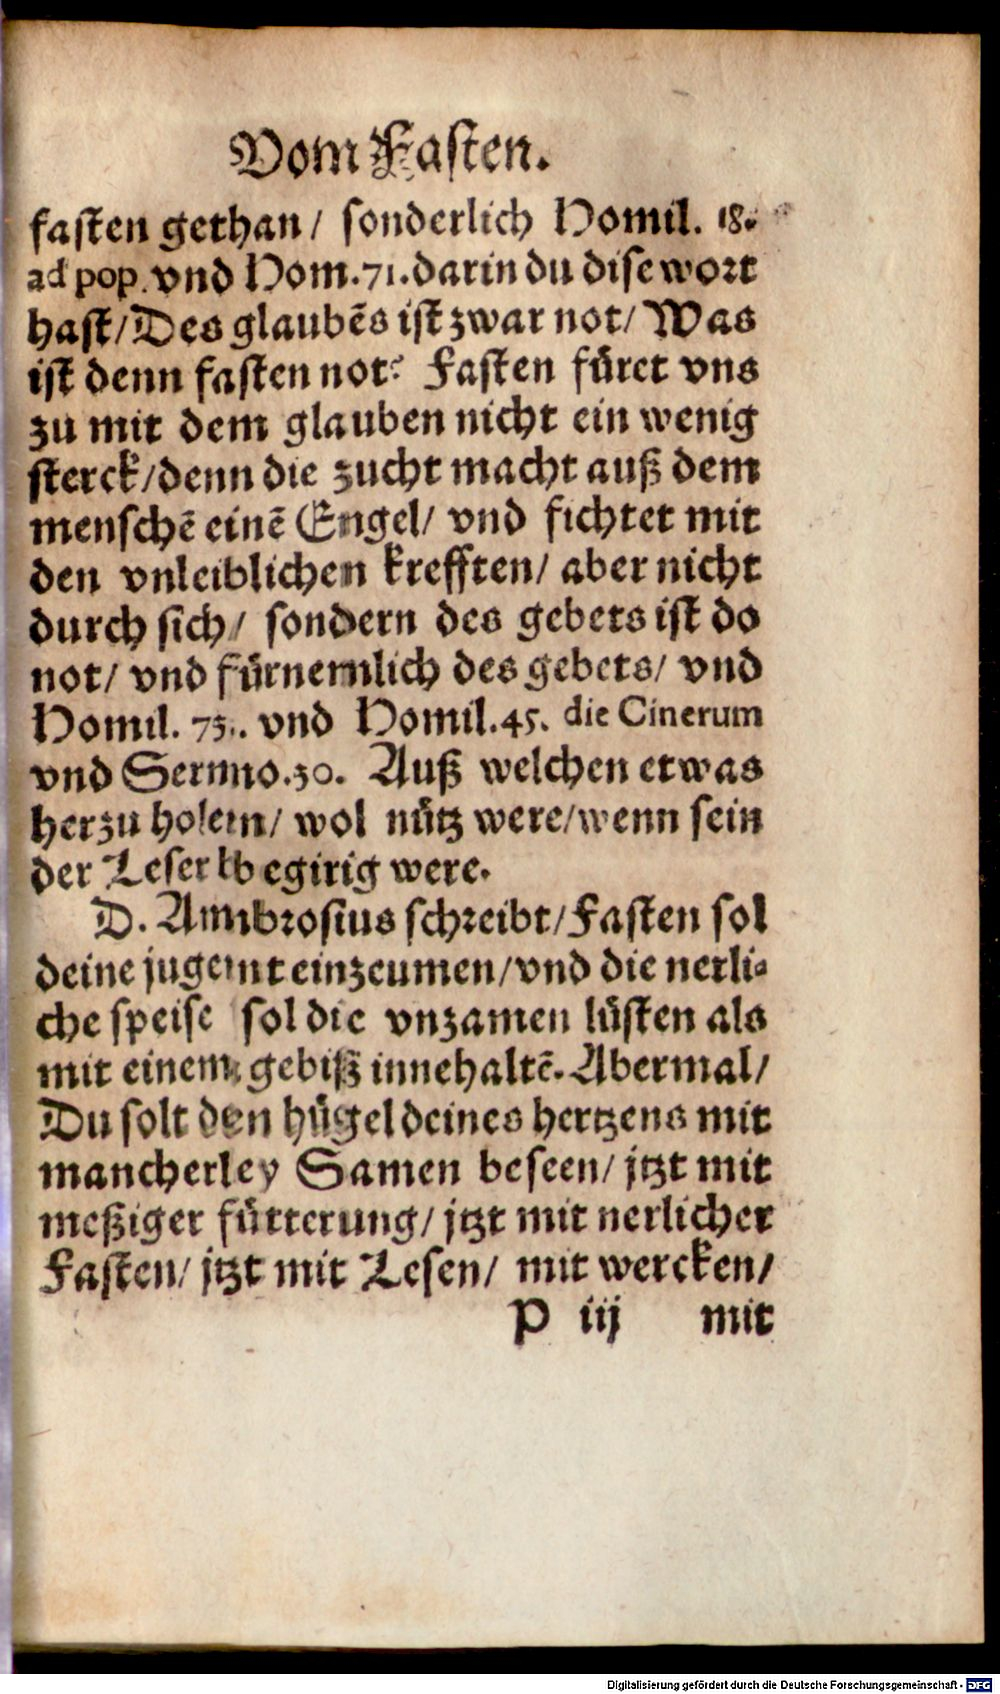 Vom Fasten.
fasten gethan/ sonderlich Homil. 18.
ad pop. vnd Hom. 71. darin du dise wort
hast/ Des glaubẽs ist zwar not/ Was
ist denn fasten not? Fasten füret vns
zu mit dem glauben nicht ein wenig
sterck/ denn die zucht macht auß dem
menschẽ einẽ Engel/ vnd fichtet mit
den vnleiblichen krefften/ aber nicht
durch sich/ sondern des gebets ist do
not/ vnd fürnemlich des gebets/ vnd
Homil. 75. vnd Homil. 45. die Cinerum
vnd Sermo. 30. Auß welchen etwas
herzu holen/ wol nütz were/ wenn sein
der Leser begirig were.
D. Ambrosius schreibt/ Fasten sol
deine jugent einzeumen/ vnd die nerli-
che speise sol die vnzamen lüsten als
mit einem gebiß innehaltẽ. Abermal/
Du solt den hügel deines hertzens mit
mancherley Samen beseen/ jtzt mit
meßiger fütterung/ jtzt mit nerlicher
Fasten/ jtzt mit Lesen/ mit wercken/
P iij mit
Digitalisierung gefördert durch die Deutsche Forschungsgemeinschaft - DFG